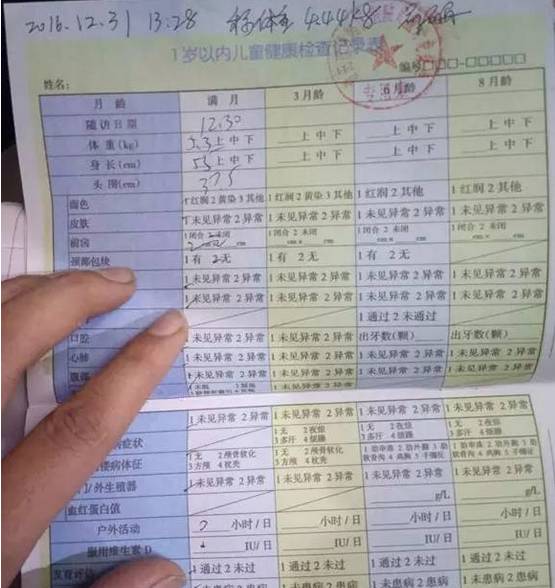 2016.12.31 13:28 称体重 4.44K8
1岁以内儿童健康检查记录表
姓名: 编号□□□-□□□□□
月 龄 满 月 3月龄 6月龄 8月龄
随访日期 12.30
体 重(kg) 上 中 下 上 中 下 上 中 下 上 中 下
身 长(cm) 53 上 中 下 上 中 下 上 中 下 上 中 下
头 围(cm) 37.5
面色 1红润2黄染3其他 1红润2黄染3其他 1红润2其他 1红润2其他
皮肤 1未见异常2异常 1未见异常2异常 1未见异常2异常 1未见异常2异常
前囟 1闭合 2未闭 1闭合 2未闭 1闭合 2未闭 1闭合 2未闭
cm cm× cm cm× cm cm× cm
颈部包块 1有 2无 1有 2无 1有 2无
1未见异常2异常 1未见异常2异常 1未见异常2异常 1未见异常2异常
1未见异常2异常 1未见异常2异常 1未见异常2异常
1通过2未通过
口腔 1未见异常2异常 1未见异常2异常 出牙数(颗) 出牙数(颗)
心肺 1未见异常2异常 1未见异常2异常 1未见异常2异常 1未见异常2异常
腹部 1未见异常2异常 1未见异常2异常 1未见异常2异常 1未见异常2异常
1未见异常2异常 1未见异常2异常 1未见异常2异常 1未见异常2异常
病症状 1无 2夜惊 1无 2夜惊 1无 2夜惊
3多汗 4烦躁 3多汗 4烦躁 3多汗 4烦躁
偻病体征 1无 2颅骨软化 1无 2颅骨软化
3方颅 4枕秃 3方颅 4枕秃
门/外生殖器 1未见异常2异常 1未见异常2异常 1未见异常2异常 1未见异常2异常
血红蛋白值 g/L g/L
户外活动 2 小时/日 小时/日 小时/日 小时/日
服用维生素D IU/日 IU/日 IU/日 IU/日
发育评估 1通过2未过 1通过2未过 1通过2未过 1通过2未过
1未患病2患病 1未患病2患病 1未患病2患病